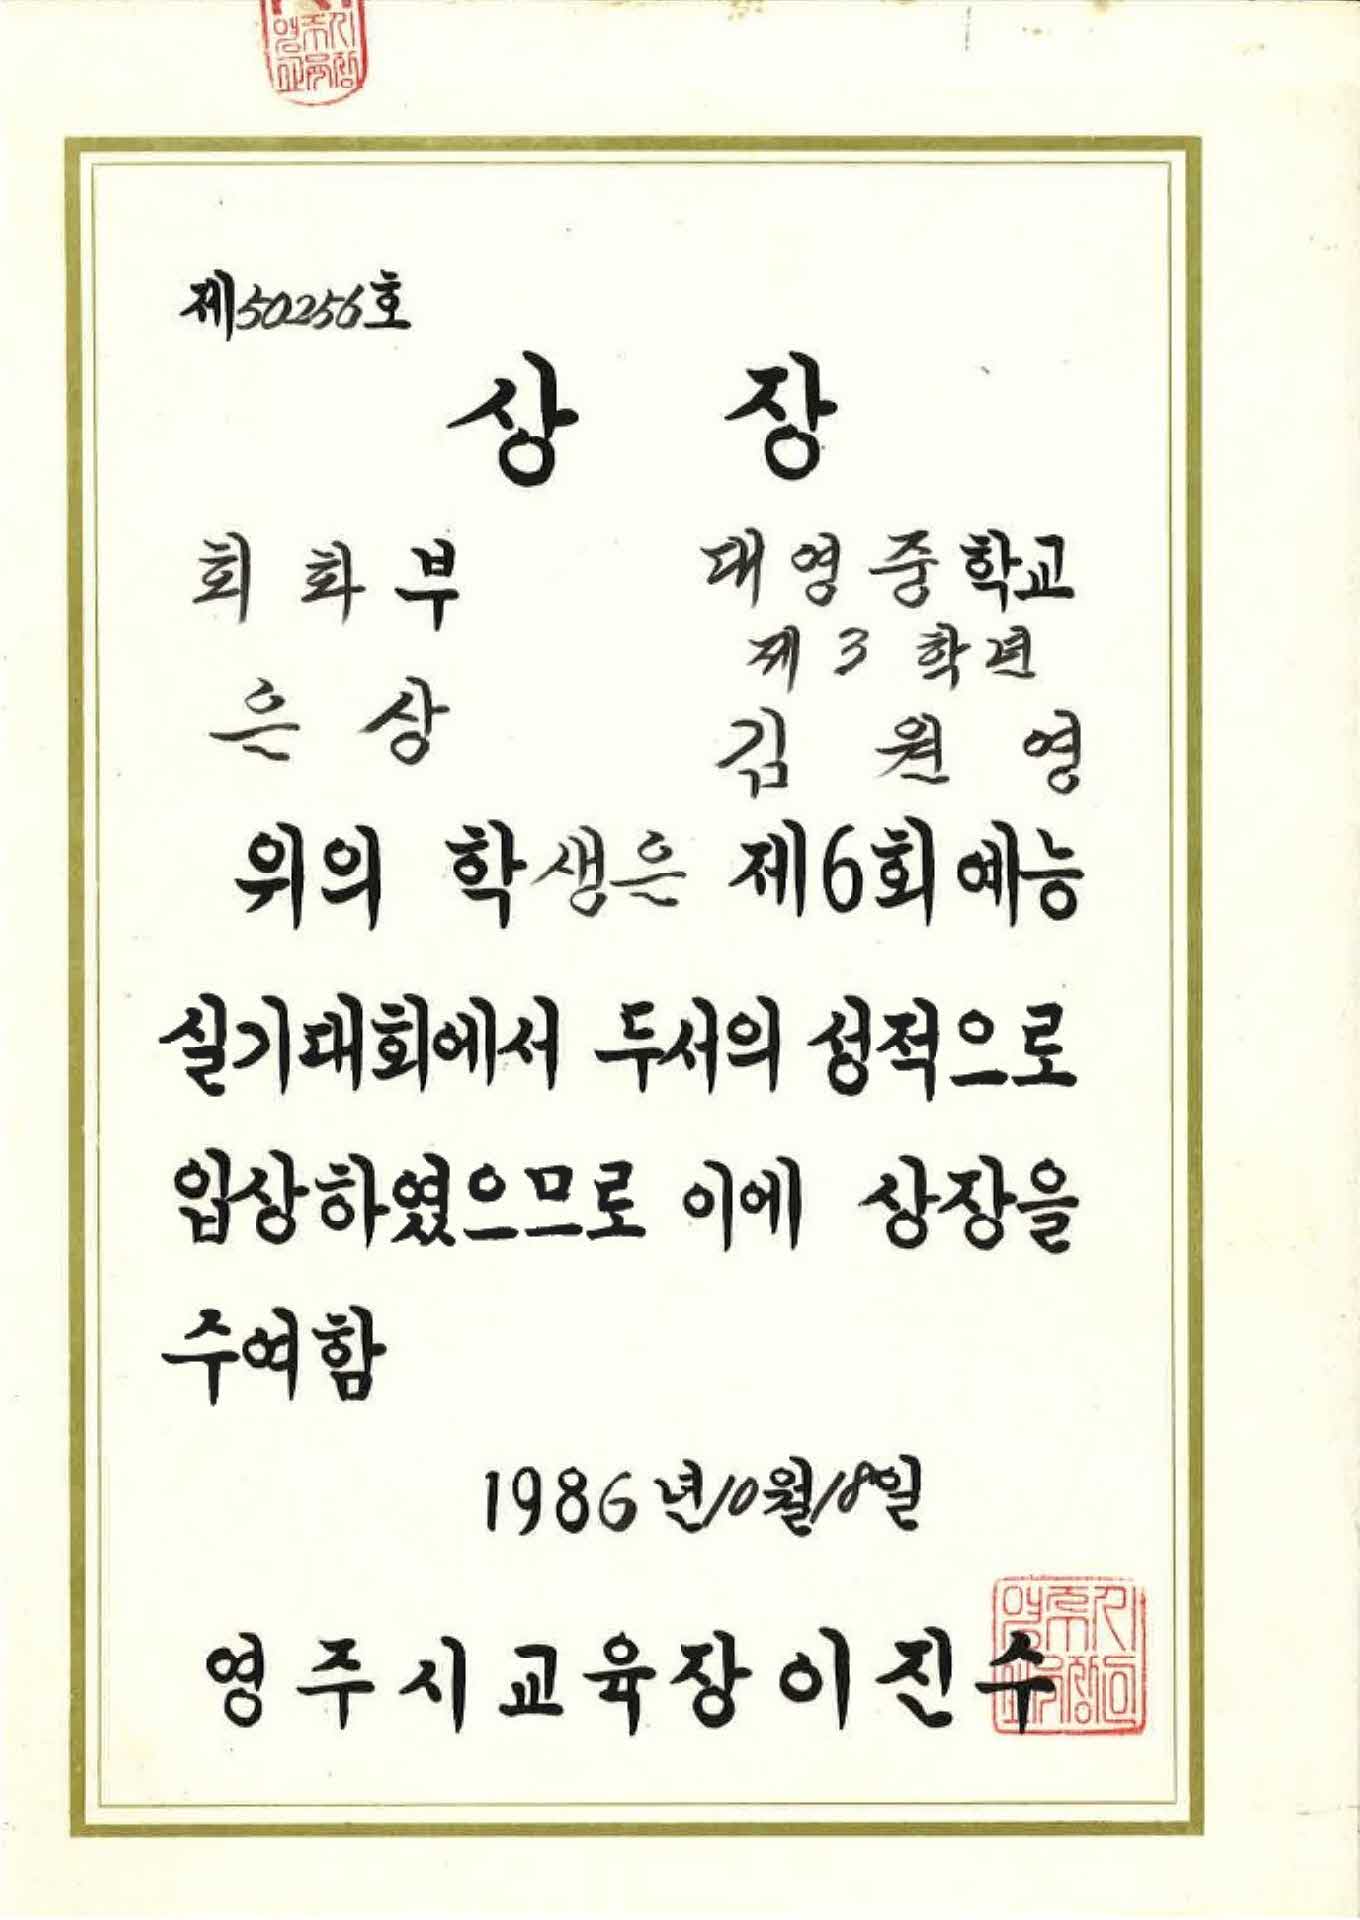 제50256호
상 장
회화부 대영중학교
제3학년
은상 김원영
위의 학생은 제6회예능
실기대회에서 두서의 성적으로
입상하였으므로 이에 상장을
주여함
1986년10월18일
영주시교육장이진수